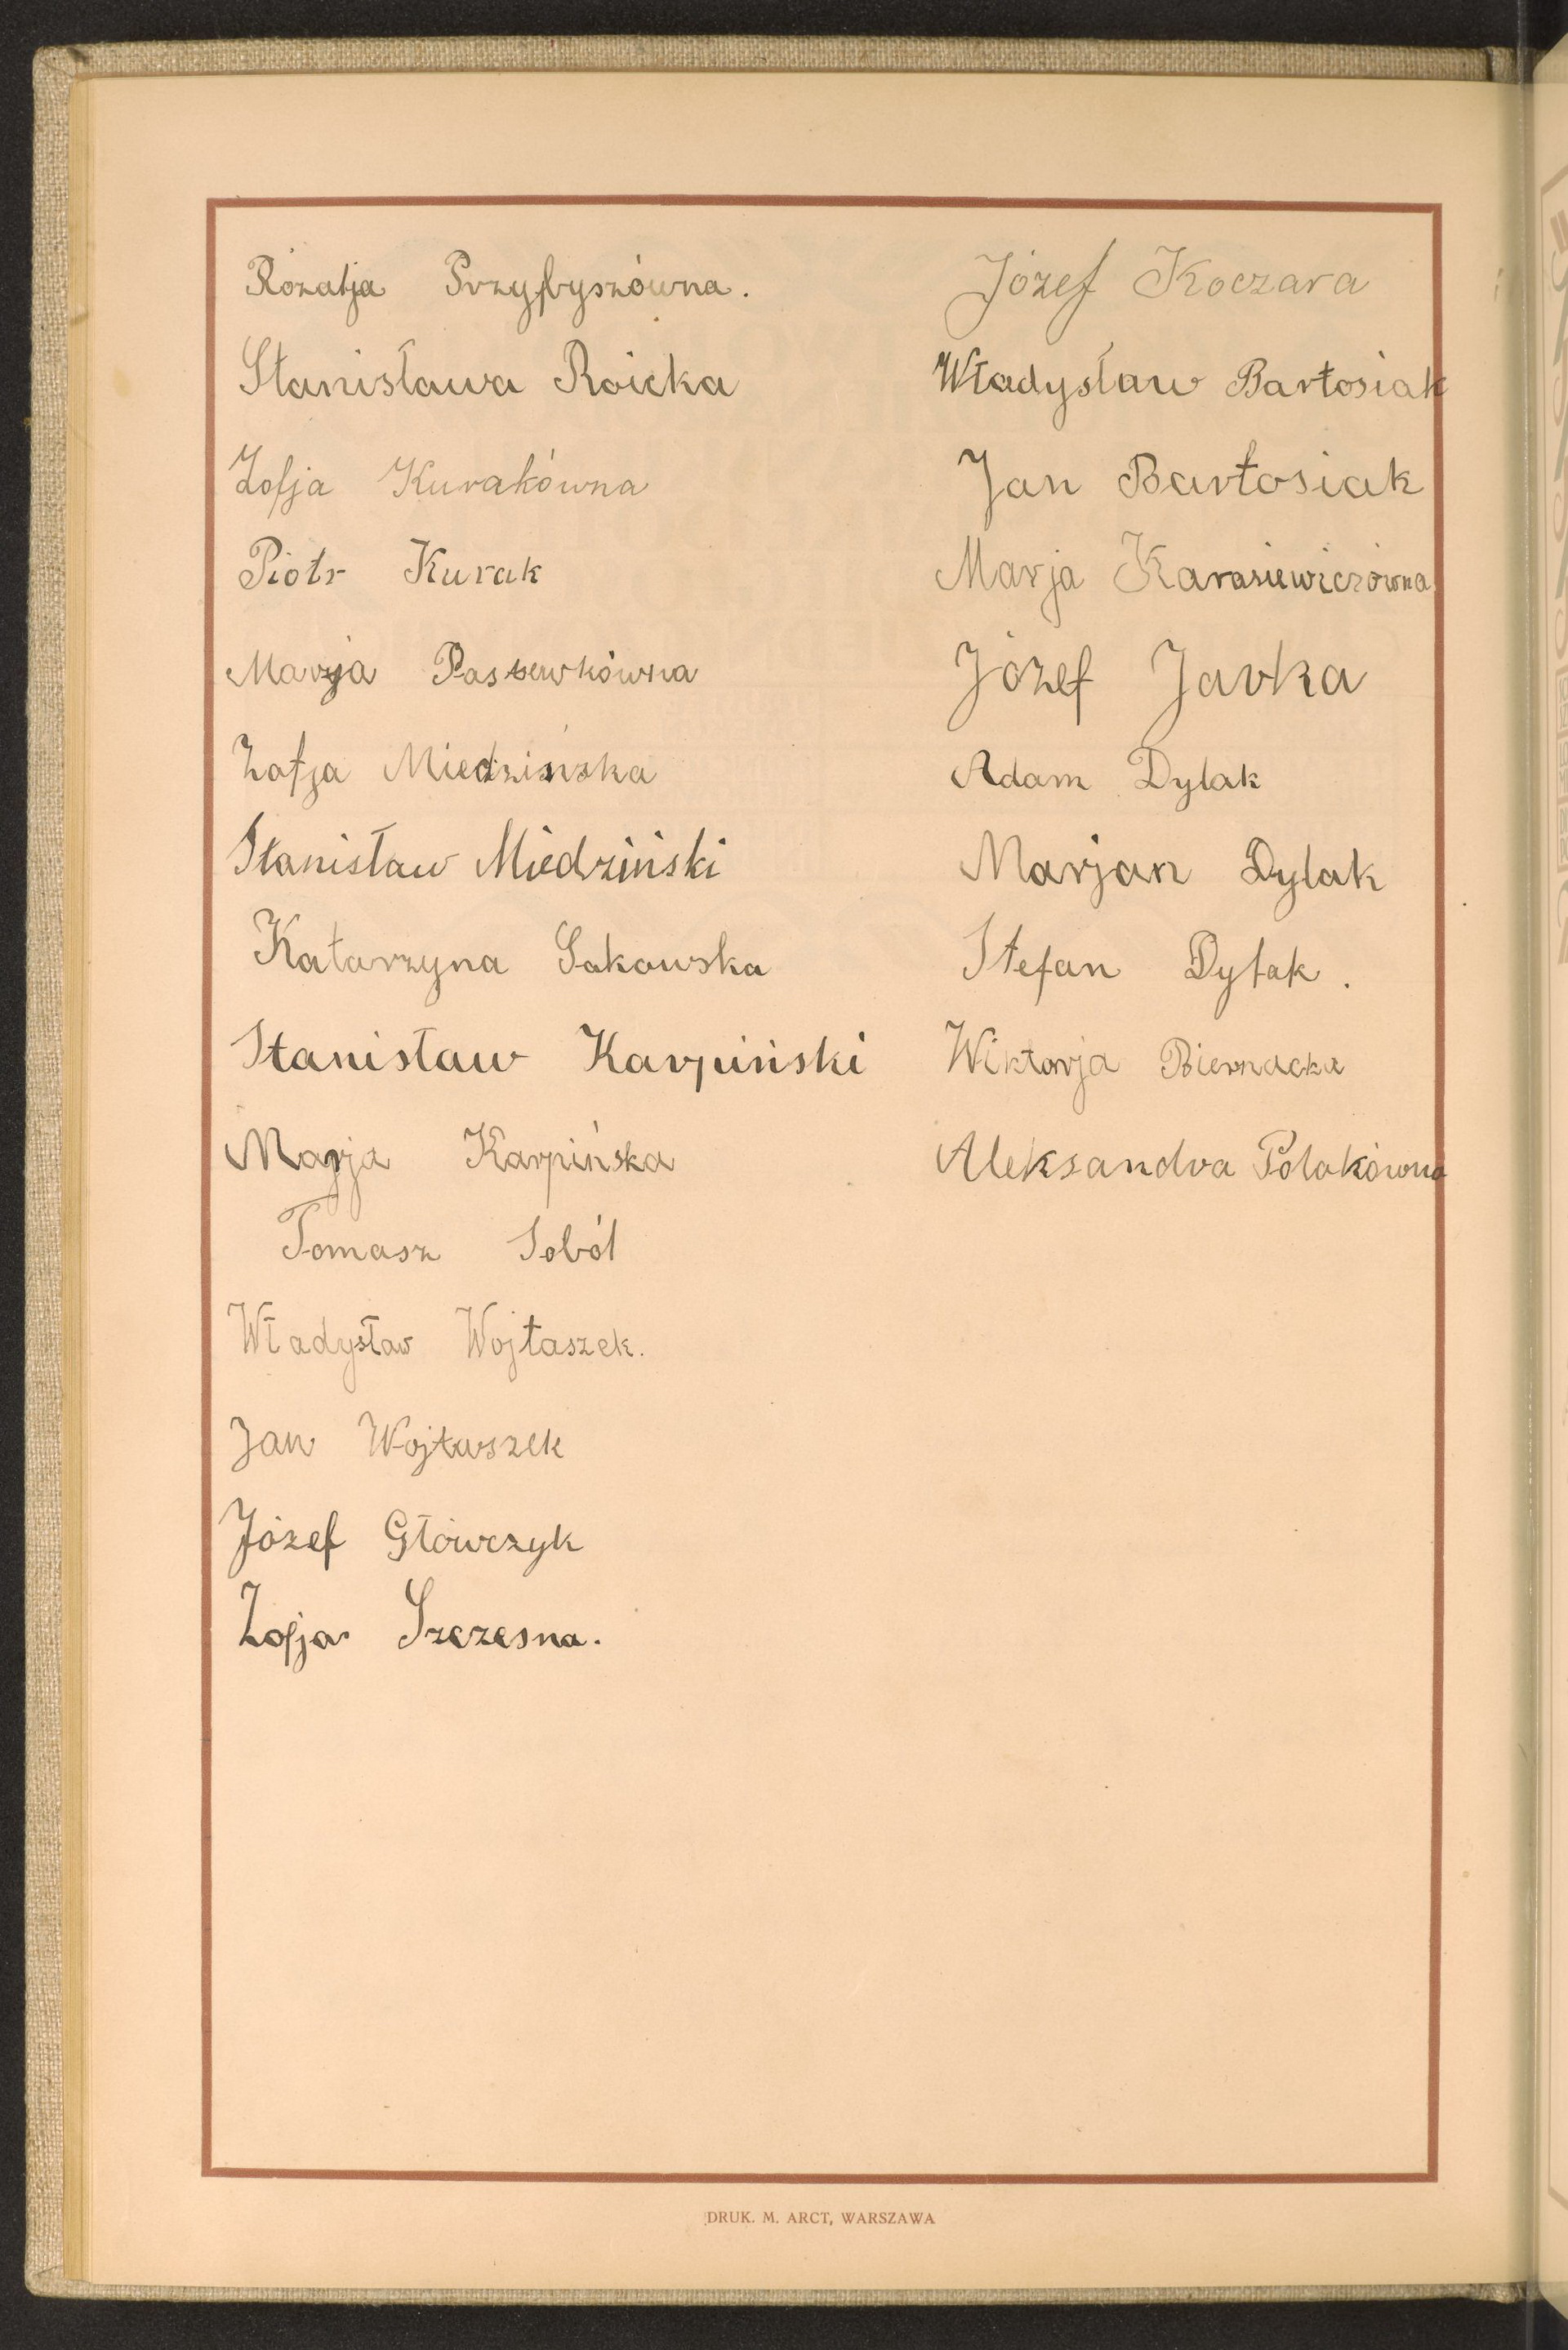 Rozalja Przybyszówna.
Stanisława Roicka
Zofja Kurakówna
Piotr Kurak
Marja Passewkówna
Zofja Miedzińska
Stanisław Miedziński
Katarzyna Sakowska
Stanisław Karpiński
Marja Karpińska
Tomasz Soból
Władysław Wojtaszek.
Jan Wojtaszek
Józef Główczyk
Zofja Szczesna.
Józef Koczara
Władysław Bartosiak
Jan Bartosiak
Marja Karasiewiczówna
Józef Jarka
Adam Dylak
Marjan Dylak
Stefan Dylak.
Wiktorja Biernacka
Aleksandra Polakówna
DRUK. M. ARCT, WARSZAWA